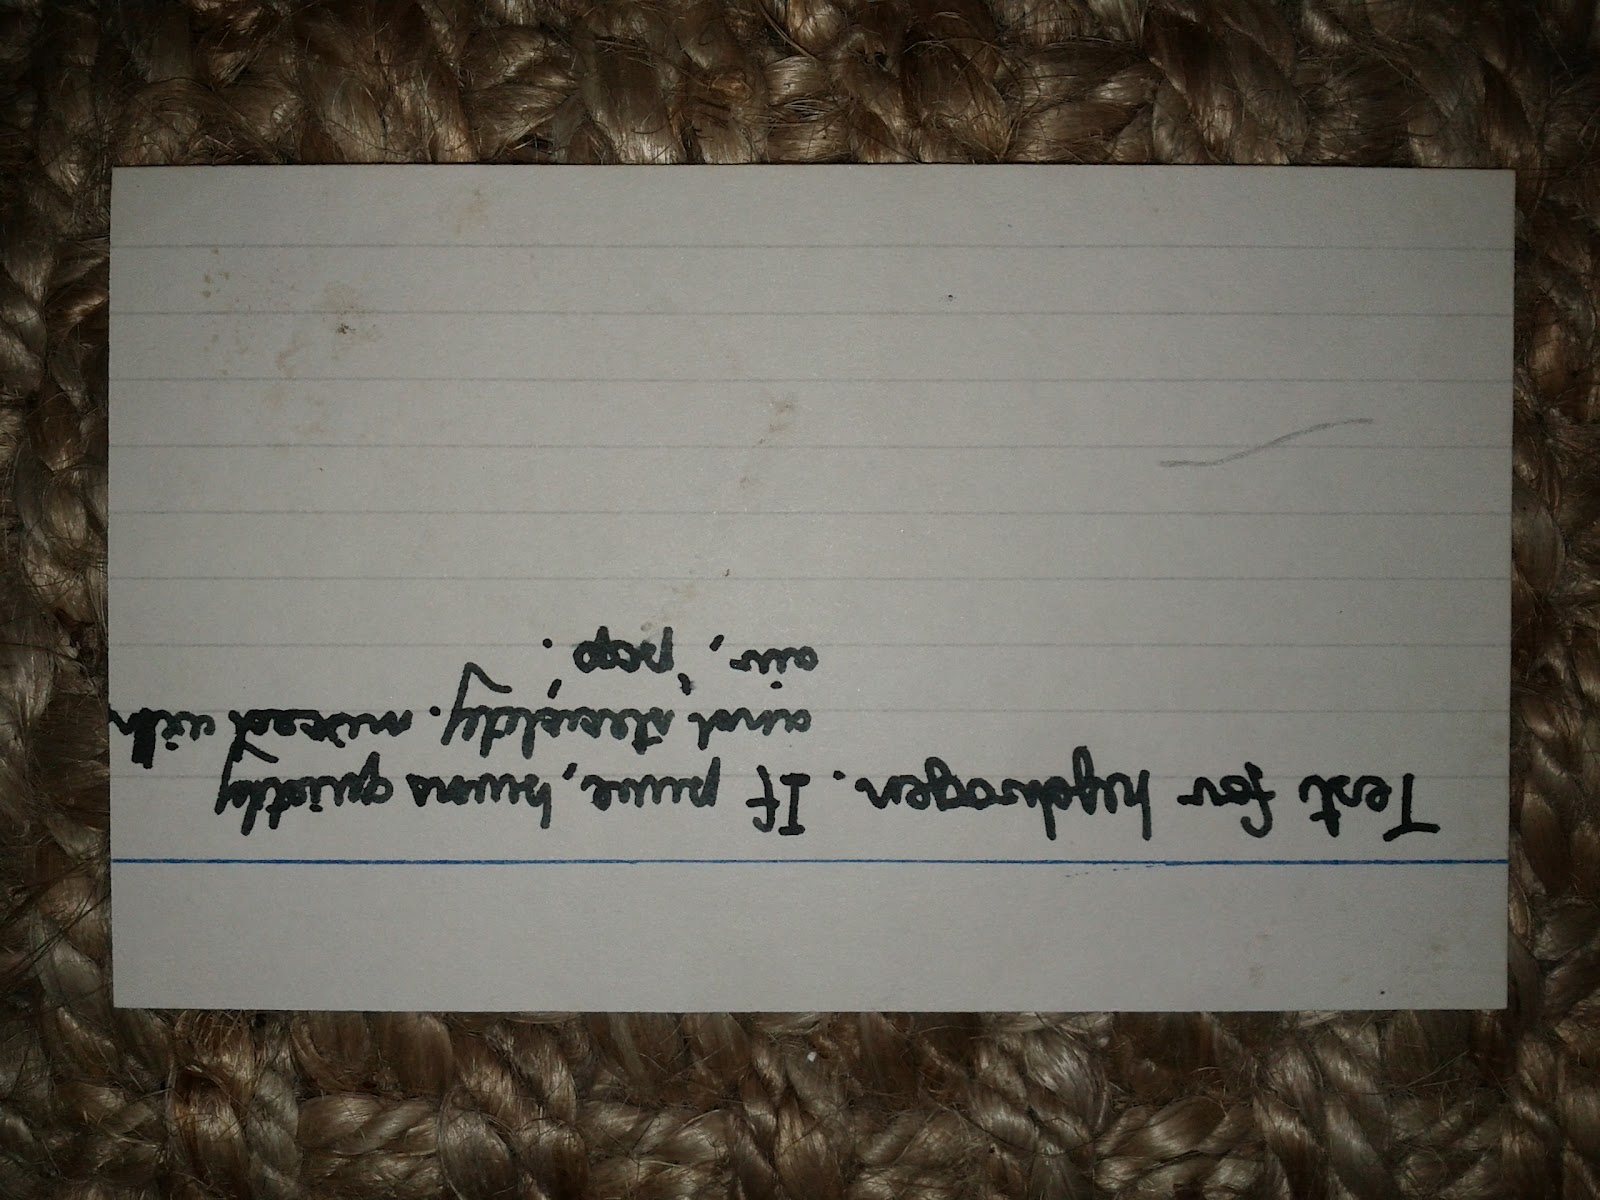 Test for hydrogen. If pure, burns quietly
and steadily. mixed with
air, 'pop'.